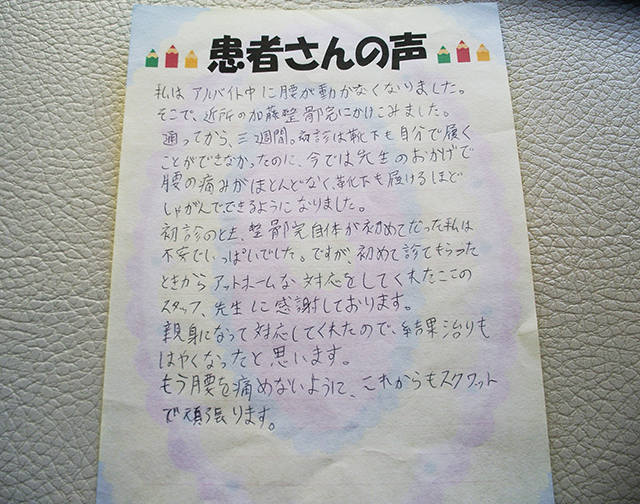 患者さんの声
私は アルバイト中に腰が動かなくなりました。
そこで、近所の加藤整骨院にかけこみました。
通ってから、三週間。初診は靴下も自分で履く
ことができなかったのに、今では先生のおかげで
腰の痛みがほとんどなく、靴下も履けるほど
しゃがんでできるようになりました。
初診のとき、整骨院自体が初めてだった私は
不安でいっぱいでした。ですが、初めて診てもらった
ときからアットホームな対応をしてくれたここの
スタッフ、先生に感謝しております。
親身になって対応してくれたので、結果治りも
はやくなったと思います。
もう腰を痛めないように、これからもスクワット
で頑張ります。